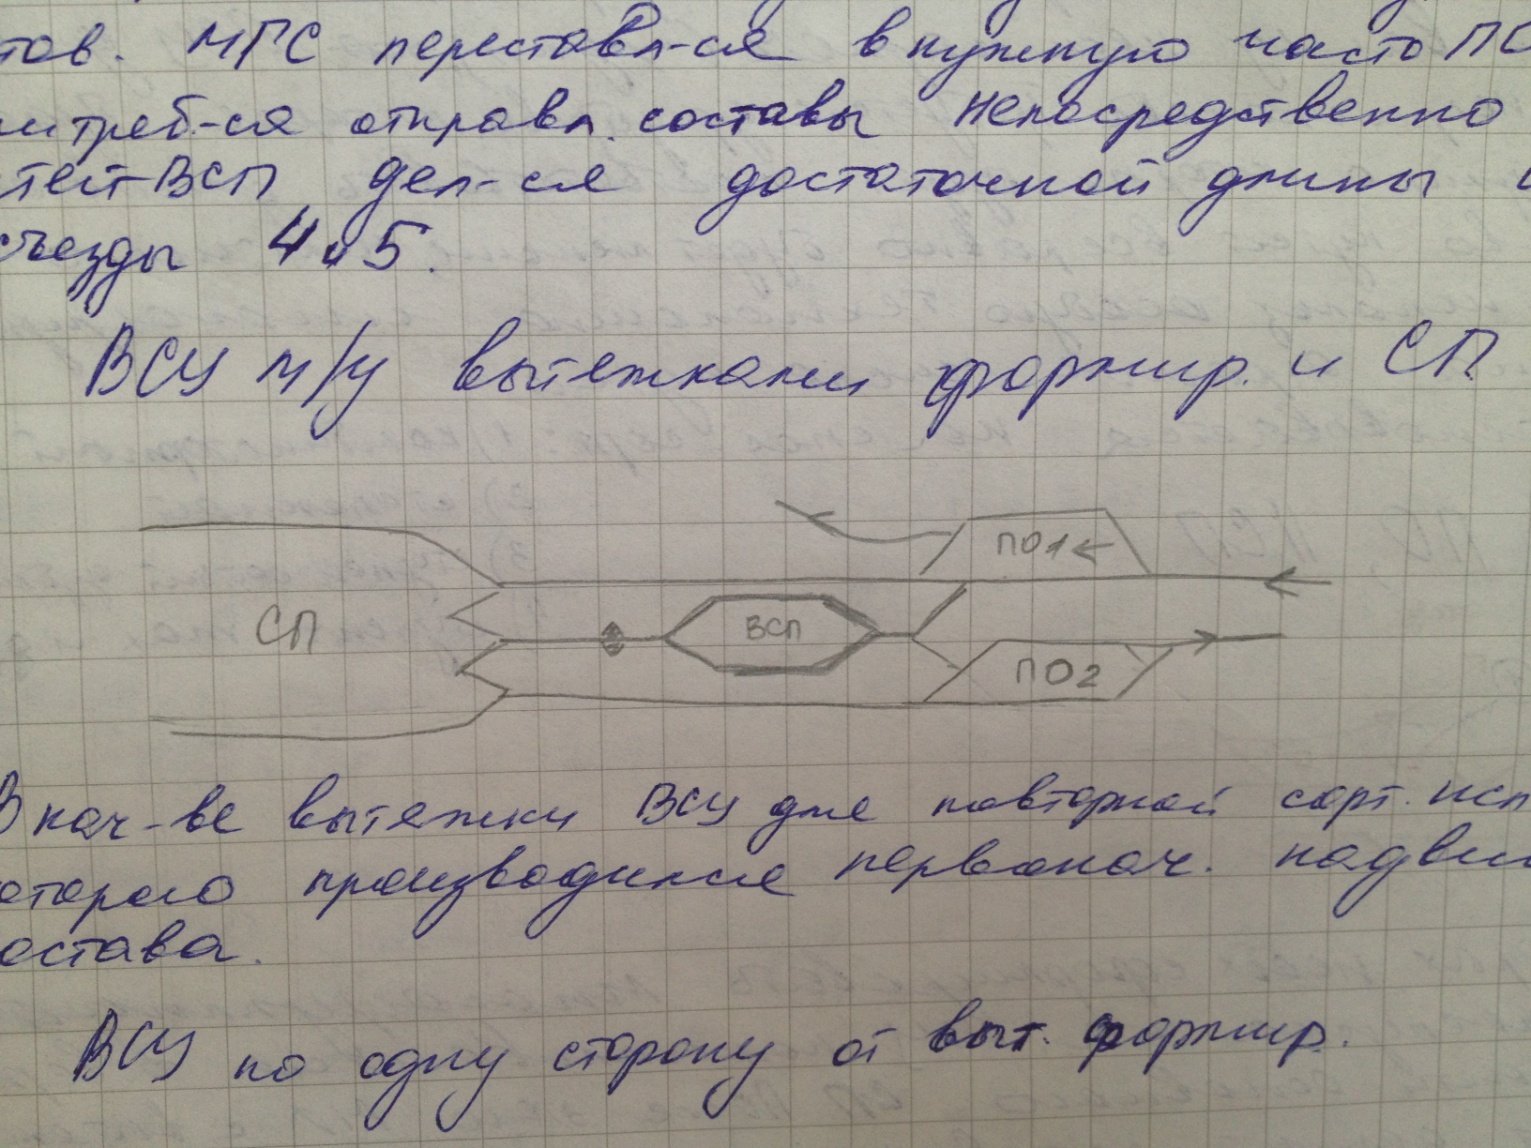 тов. МГС переставл-ся в нужную часть ПО
треб-ся отправл. составы непосредственно
ВСП дел-ся достаточной длины
съезды 4 и 5.
ВСУ м/у вытяжками формир. и СП
ПО1
СП
ВСП
ПО2
В кач-ве вытяжки ВСУ для повторной сорт. исп
которого производился первонач. надви
остава.
ВСУ по одну сторону от выт. формир.